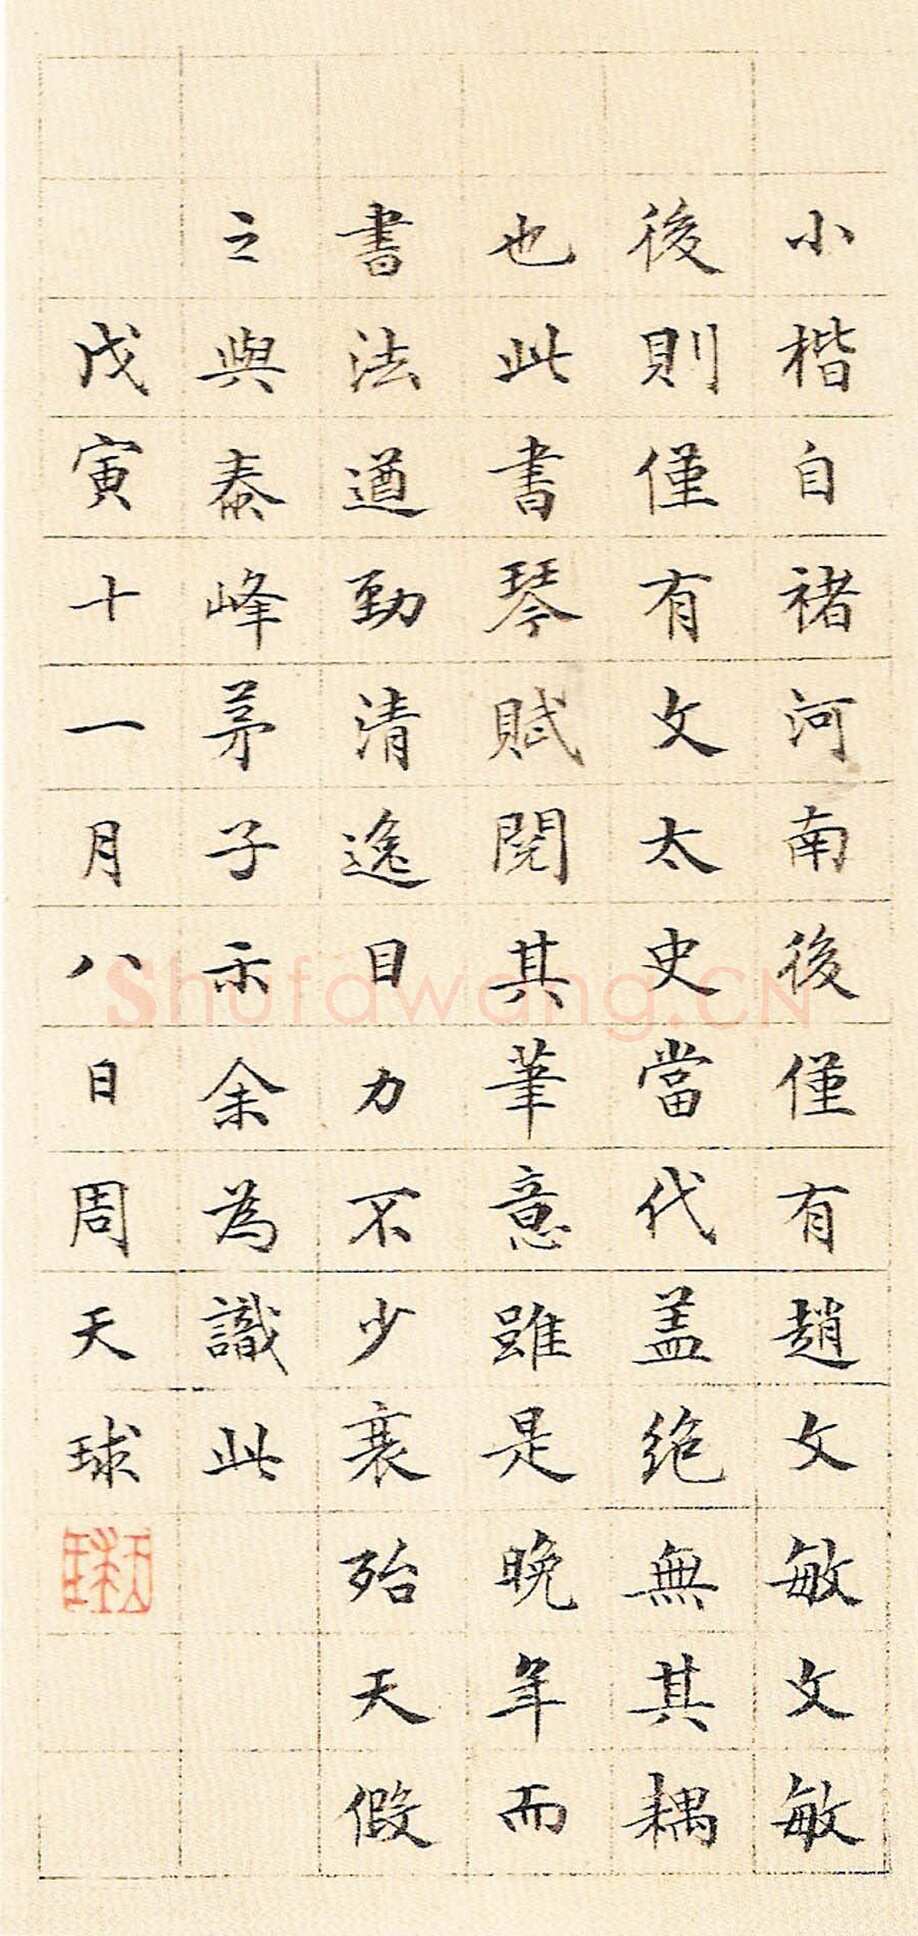 小楷自褚河南後僅有趙文敏文敏
後則僅有文太史當代盖絶無其耦
也此書琴賦閱其筆意雖是晚年而
書法遒勁清逸目力不少衰殆天假
之與泰峰茅子示余為識此
戊寅十一月八日周天球
Shufawang.CN